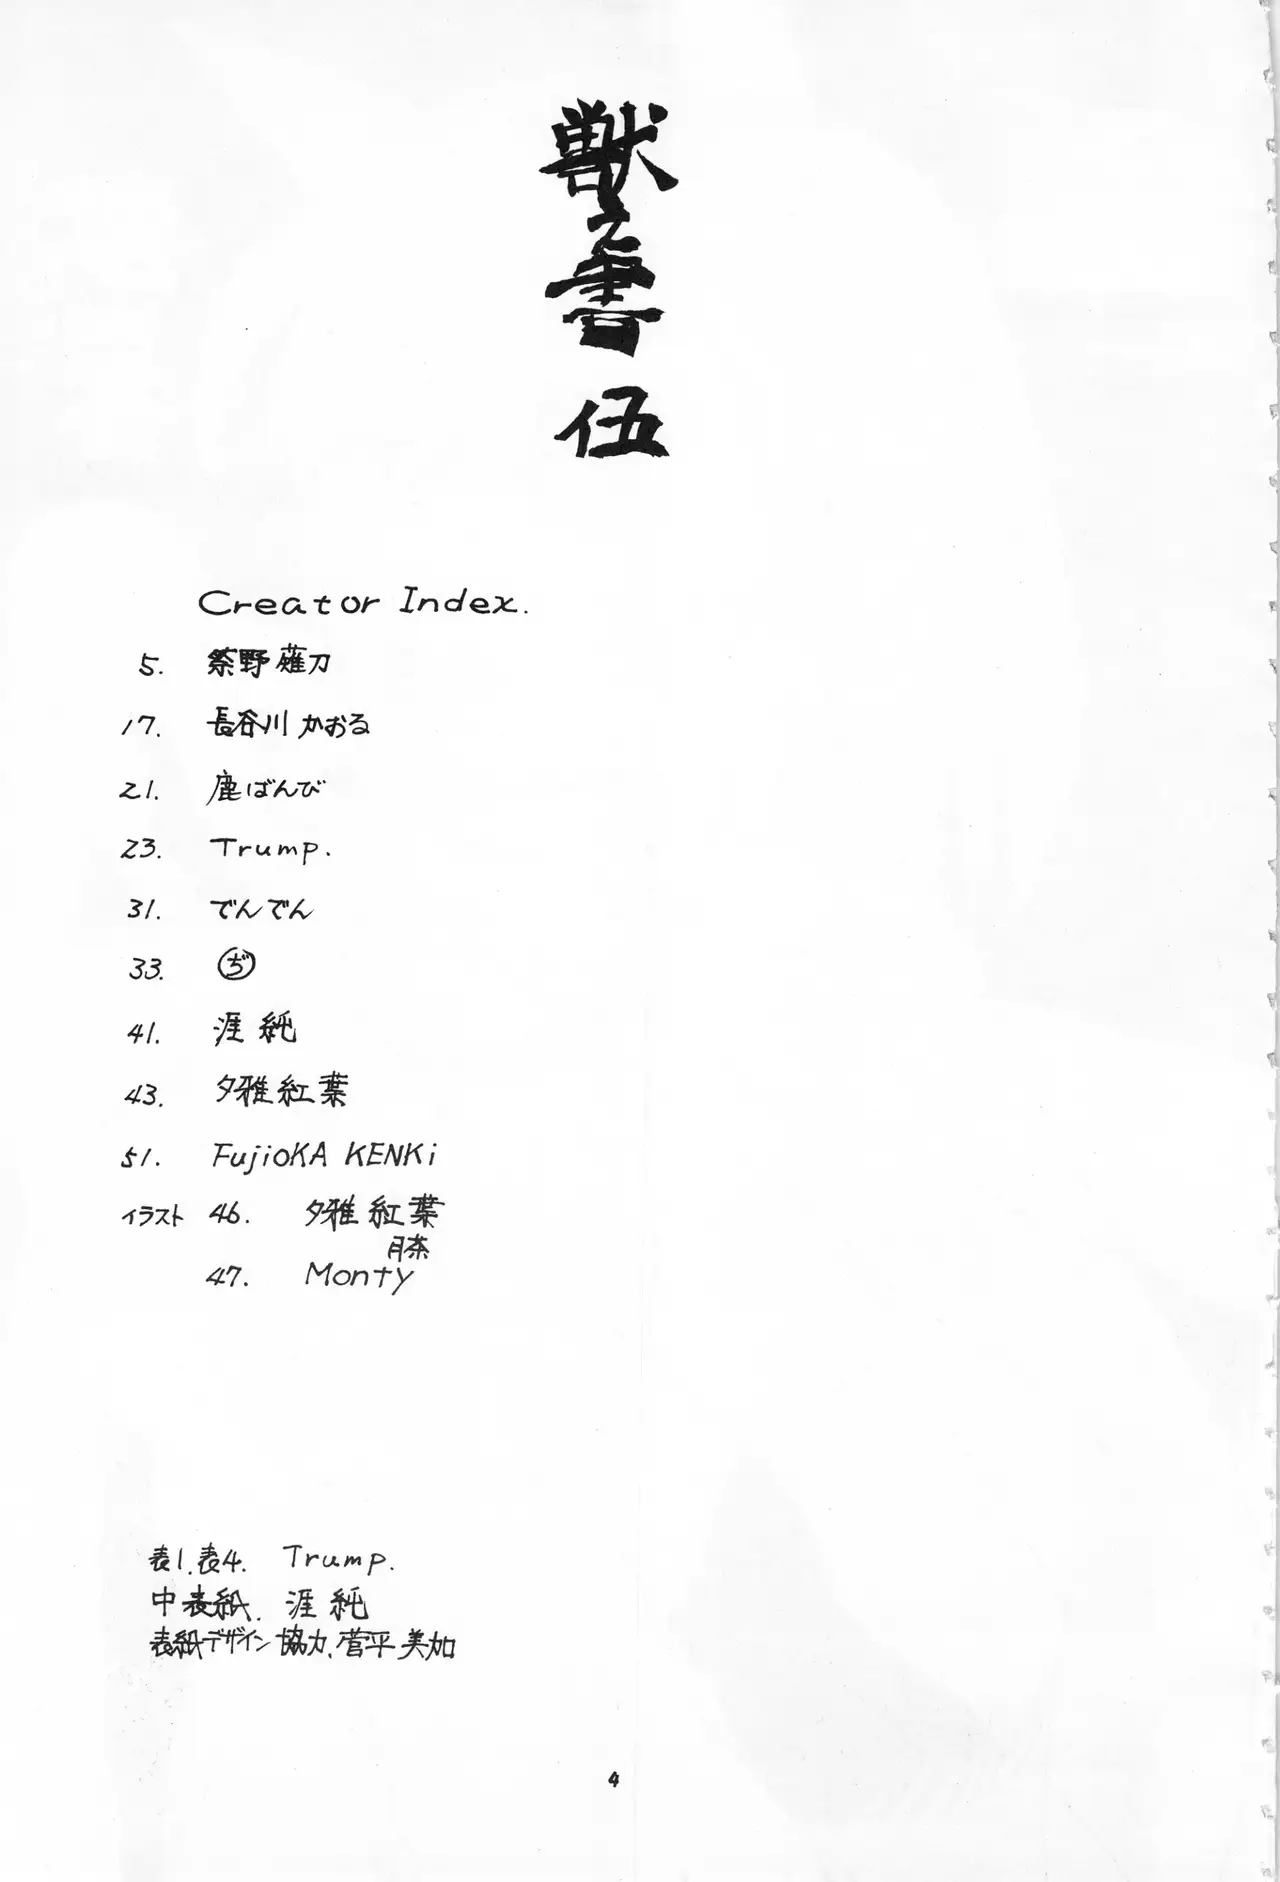 獣之書 伍
Creator Index.
5. 祭野薙刀
17. 長谷川かおる
21. 鹿ばんび
23. Trump.
31. でんでん
33. ぢ
41. 涯純
43. 夕雅紅葉
51. FujiOKA KENKi
イラスト 46. 夕雅紅葉
月茶
47. Monty
表1.表4. Trump.
中表紙. 涯純
表紙デザイン協力.菅平美加
4